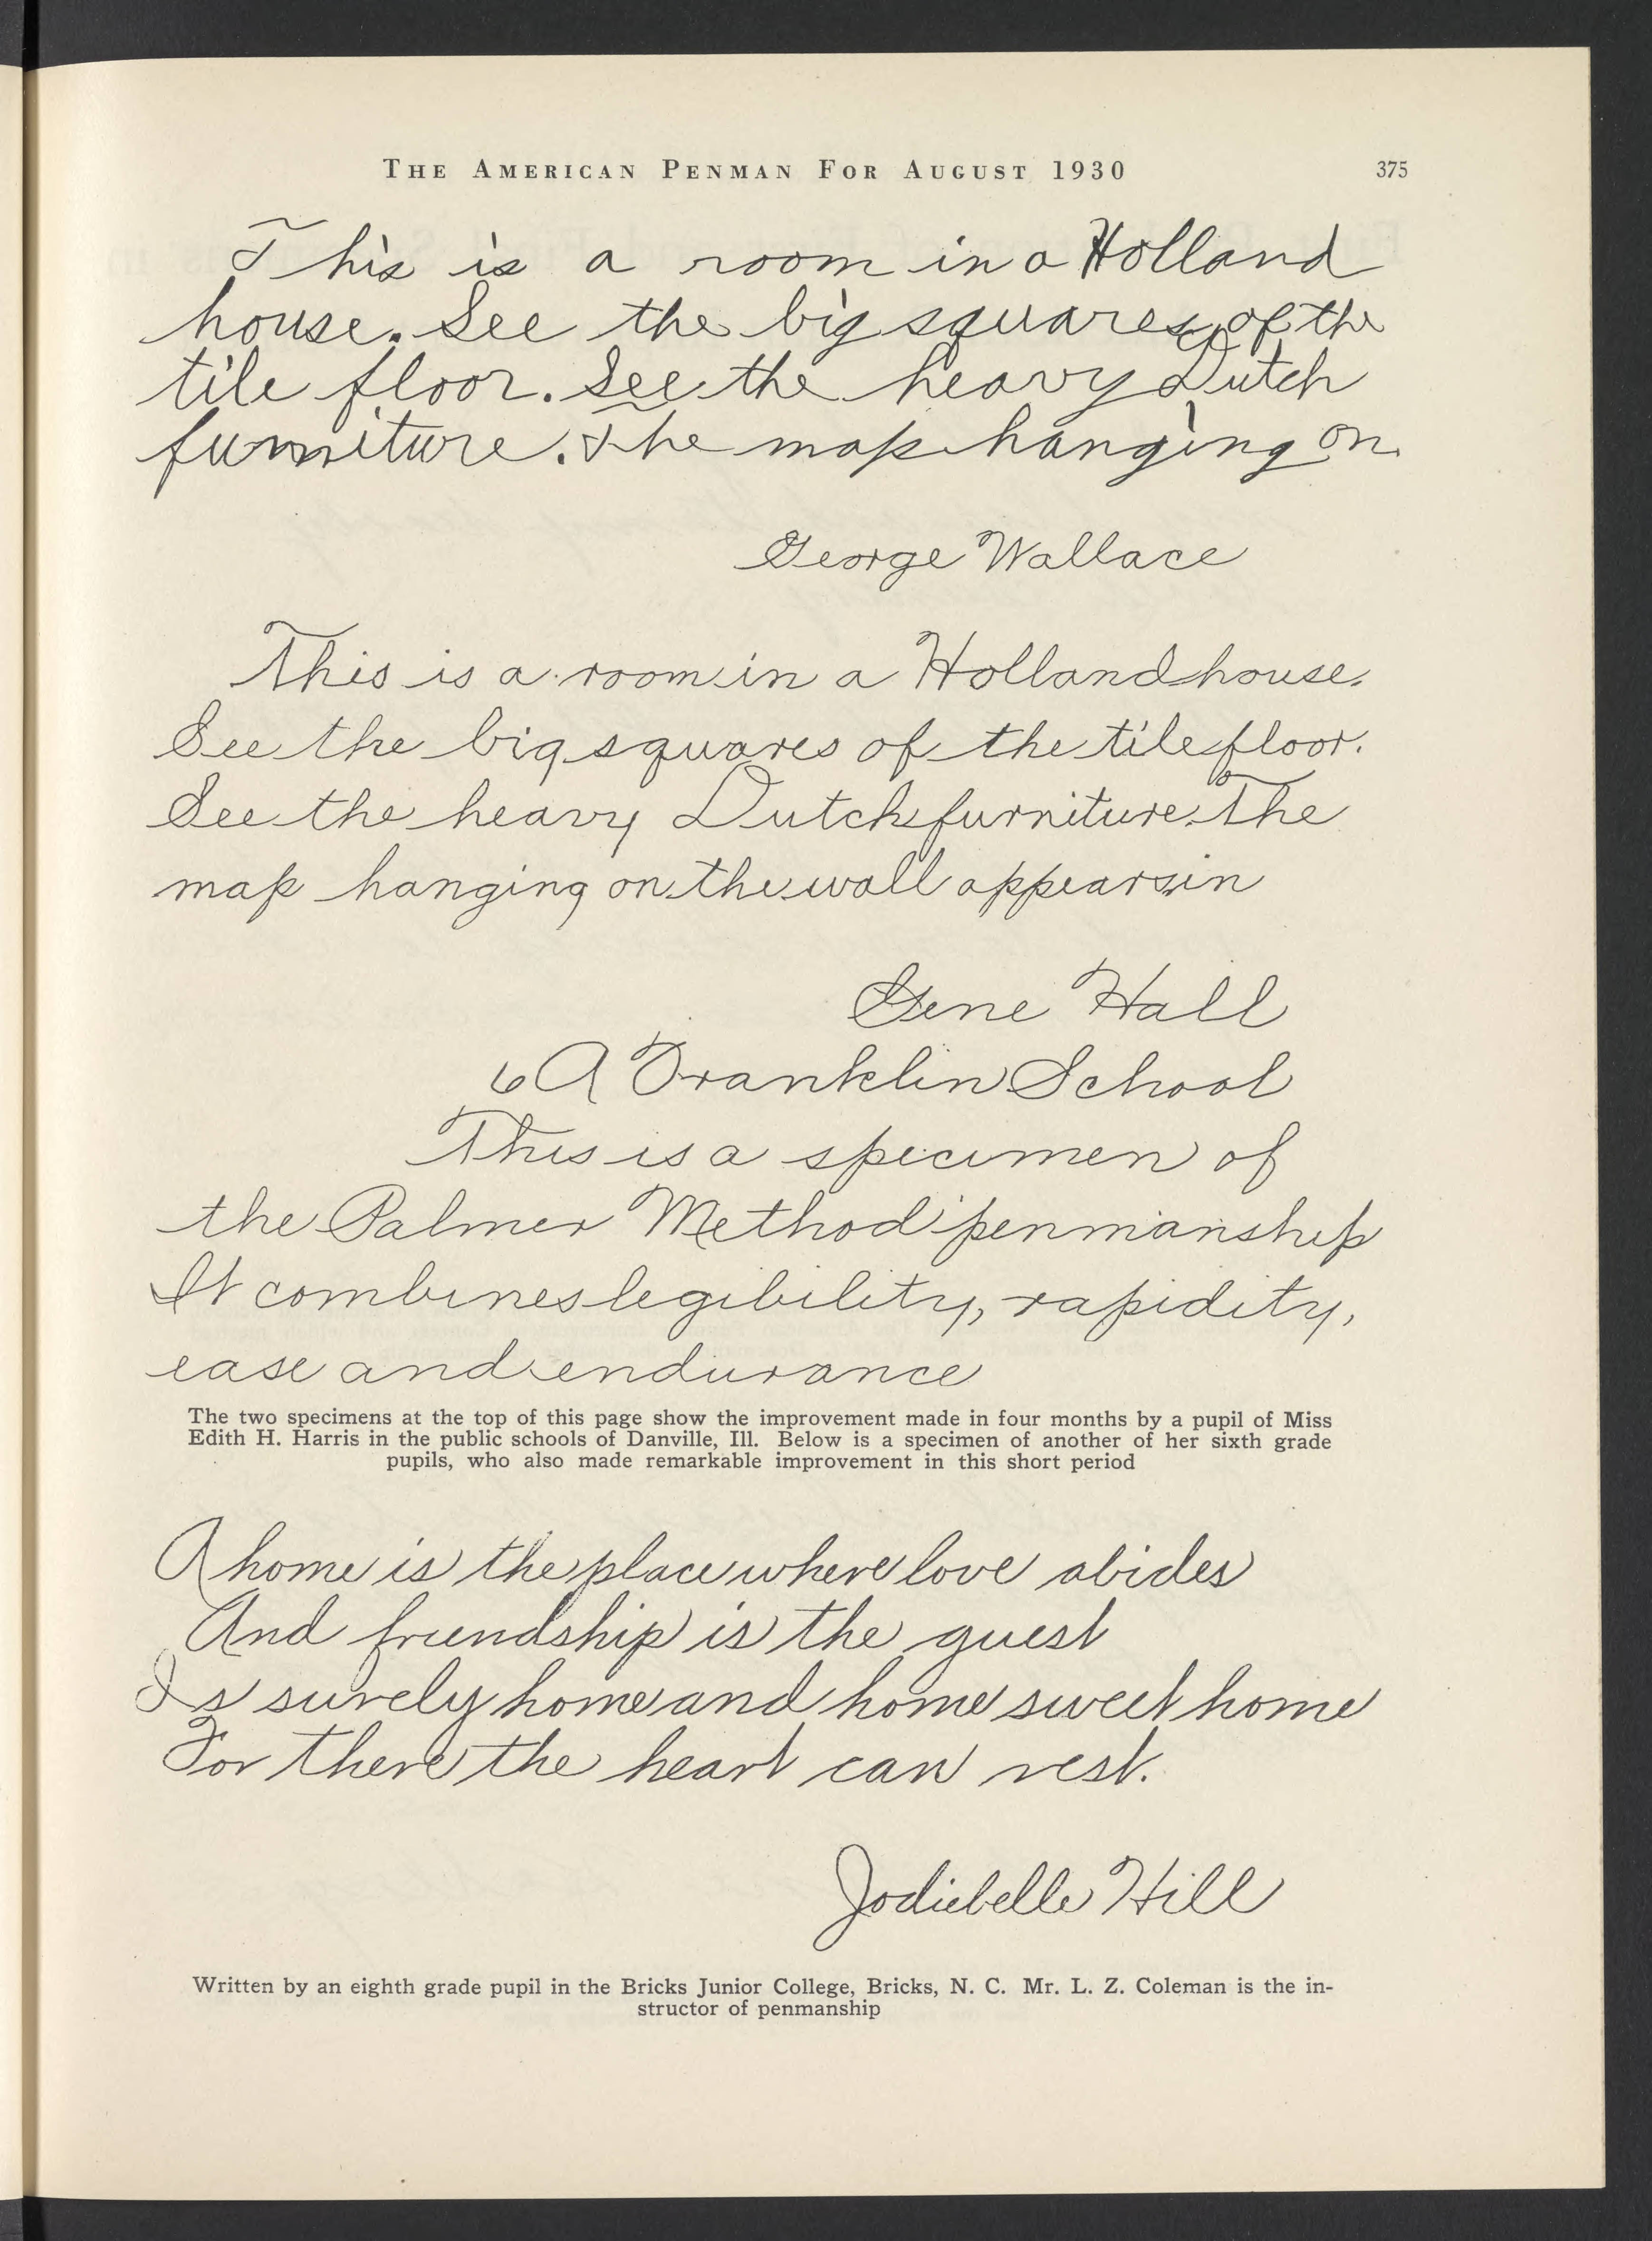 THE AMERICAN PENMAN FOR AUGUST 1930 375
This is a room in a Holland
house. See the big squares of the
tile floor. See the heavy Dutch
furniture. The map hanging on
George Wallace
This is a room in a Holland house.
See the big squares of the tile floor.
See the heavy Dutch furniture. The
map hanging on the wall appears in
Gene Hall
6A Franklin School
This is a specimen of
the Palmer Method penmanship
It combines legibility, rapidity,
ease and endurance
The two specimens at the top of this page show the improvement made in four months by a pupil of Miss
Edith H. Harris in the public schools of Danville, Ill. Below is a specimen of another of her sixth grade
pupils, who also made remarkable improvement in this short period
A home is the place where love abides
And friendship is the guest
Is surely home and home sweet home
For there the heart can rest.
Jodiebelle Hill
Written by an eighth grade pupil in the Bricks Junior College, Bricks, N. C. Mr. L. Z. Coleman is the in-
structor of penmanship